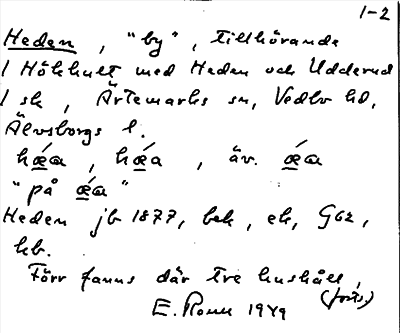 1-2
Heden, "by", tillhörande
1 Hökhult med Heden och Udderud
1 sk, Ärtemarks sn, Vedbo hd,
Älvsborgs l.
hǽa, hǽa, äv. ǽa
"på ǽa"
Heden jb 1877, bek, ek, Gaz,
kb.
Förr fanns där tre hushåll,
(forts)
E. Rome 1949